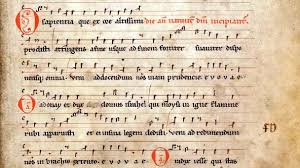 O sapientia que ex ore altissimi
prodisti attingens a fine usque ad finem fortiter suaviter dispo
nensque omnia veni ad docendum nos viam prudencie. e v o v a e
O adonay et dux domus israhel qui moysi in igne flamme
rubi apparuisti et ei in syna legem dedisti veni ad redimendum
nos in brachio extento. e v o v a e O radix yesse qui stas